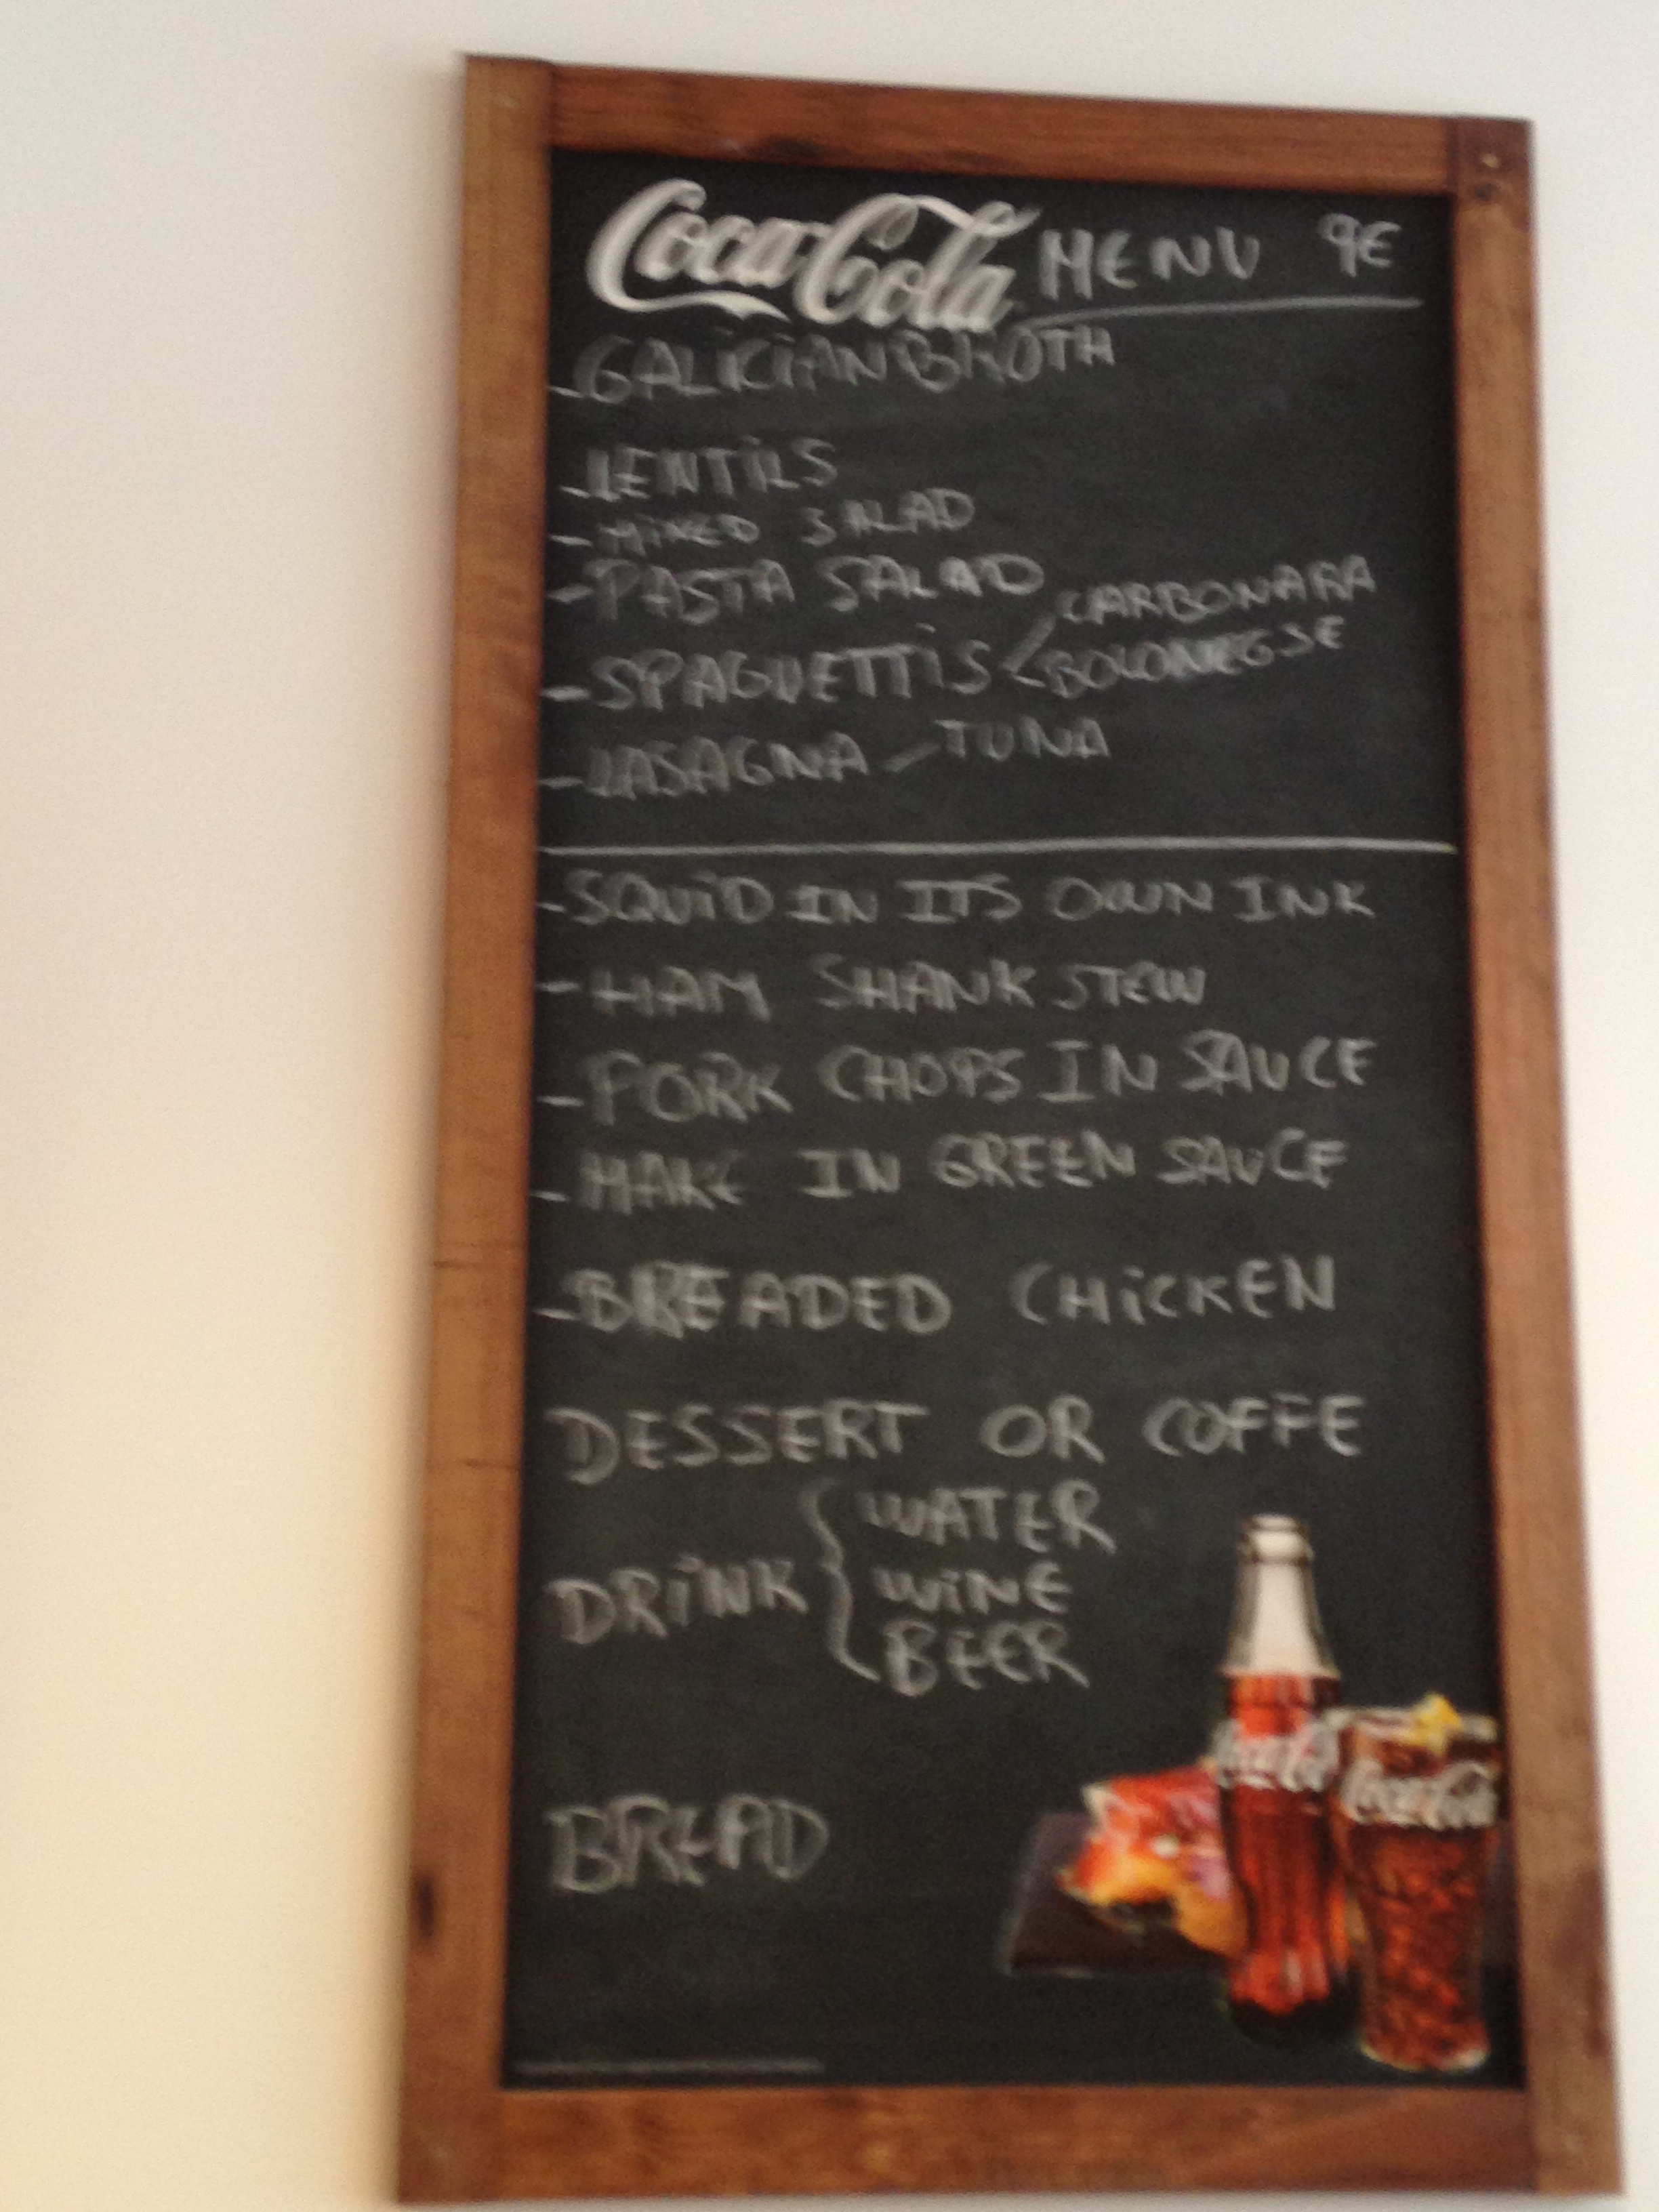 Coca-Cola MENU 9€
-GALICIAN BROTH
-LENTILS
-MIXED SALAD
-PASTA SALAD
-SPAGUETTIS CARBONARA
BOLONEGSE
-LASAGNA - TUNA
-SQUID IN ITS OWN INK
-HAM SHANK STEW
-PORK CHOPS IN SAUCE
-HAKE IN GREEN SAUCE
-BREADED CHICKEN
DESSERT OR COFFE
DRINK { WATER
WINE
BEER
BREAD
Coca-Cola
Coca-Cola